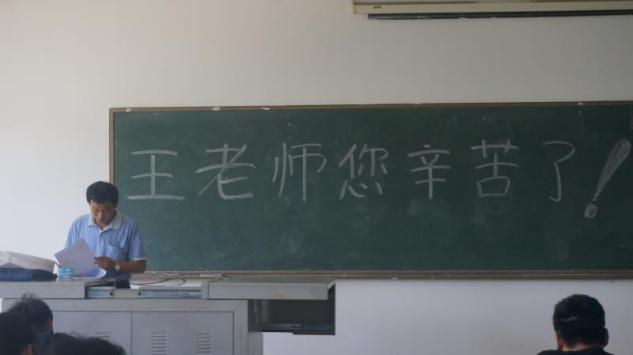 王老师您辛苦了!